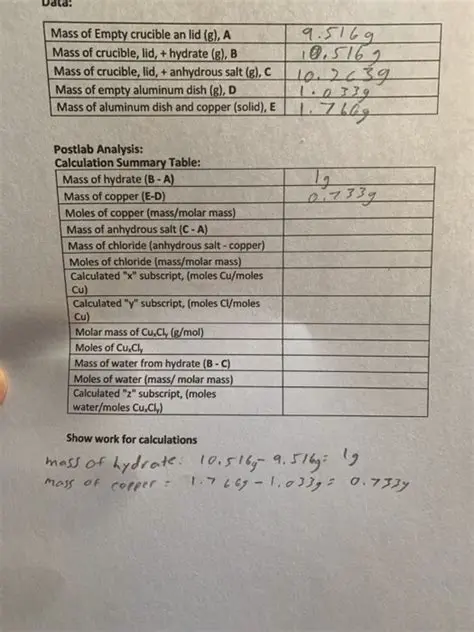 Data:
Mass of Empty crucible an lid (g), A 9.516g
Mass of crucible, lid, + hydrate (g), B 10.516g
Mass of crucible, lid, + anhydrous salt (g), C 10.263g
Mass of empty aluminum dish (g), D 1.033g
Mass of aluminum dish and copper (solid), E 1.766g
Postlab Analysis:
Calculation Summary Table:
Mass of hydrate (B - A) 1g
Mass of copper (E-D) 0.733g
Moles of copper (mass/molar mass)
Mass of anhydrous salt (C - A)
Mass of chloride (anhydrous salt - copper)
Moles of chloride (mass/molar mass)
Calculated "x" subscript, (moles Cu/moles
Cu)
Calculated "y" subscript, (moles Cl/moles
Cu)
Molar mass of CuxCly (g/mol)
Moles of CuxCly
Mass of water from hydrate (B - C)
Moles of water (mass/ molar mass)
Calculated "z" subscript, (moles
water/moles CuxCly)
Show work for calculations
mass of hydrate: 10.516g - 9.516g = 1g
mass of copper = 1.766g - 1.033g = 0.733g